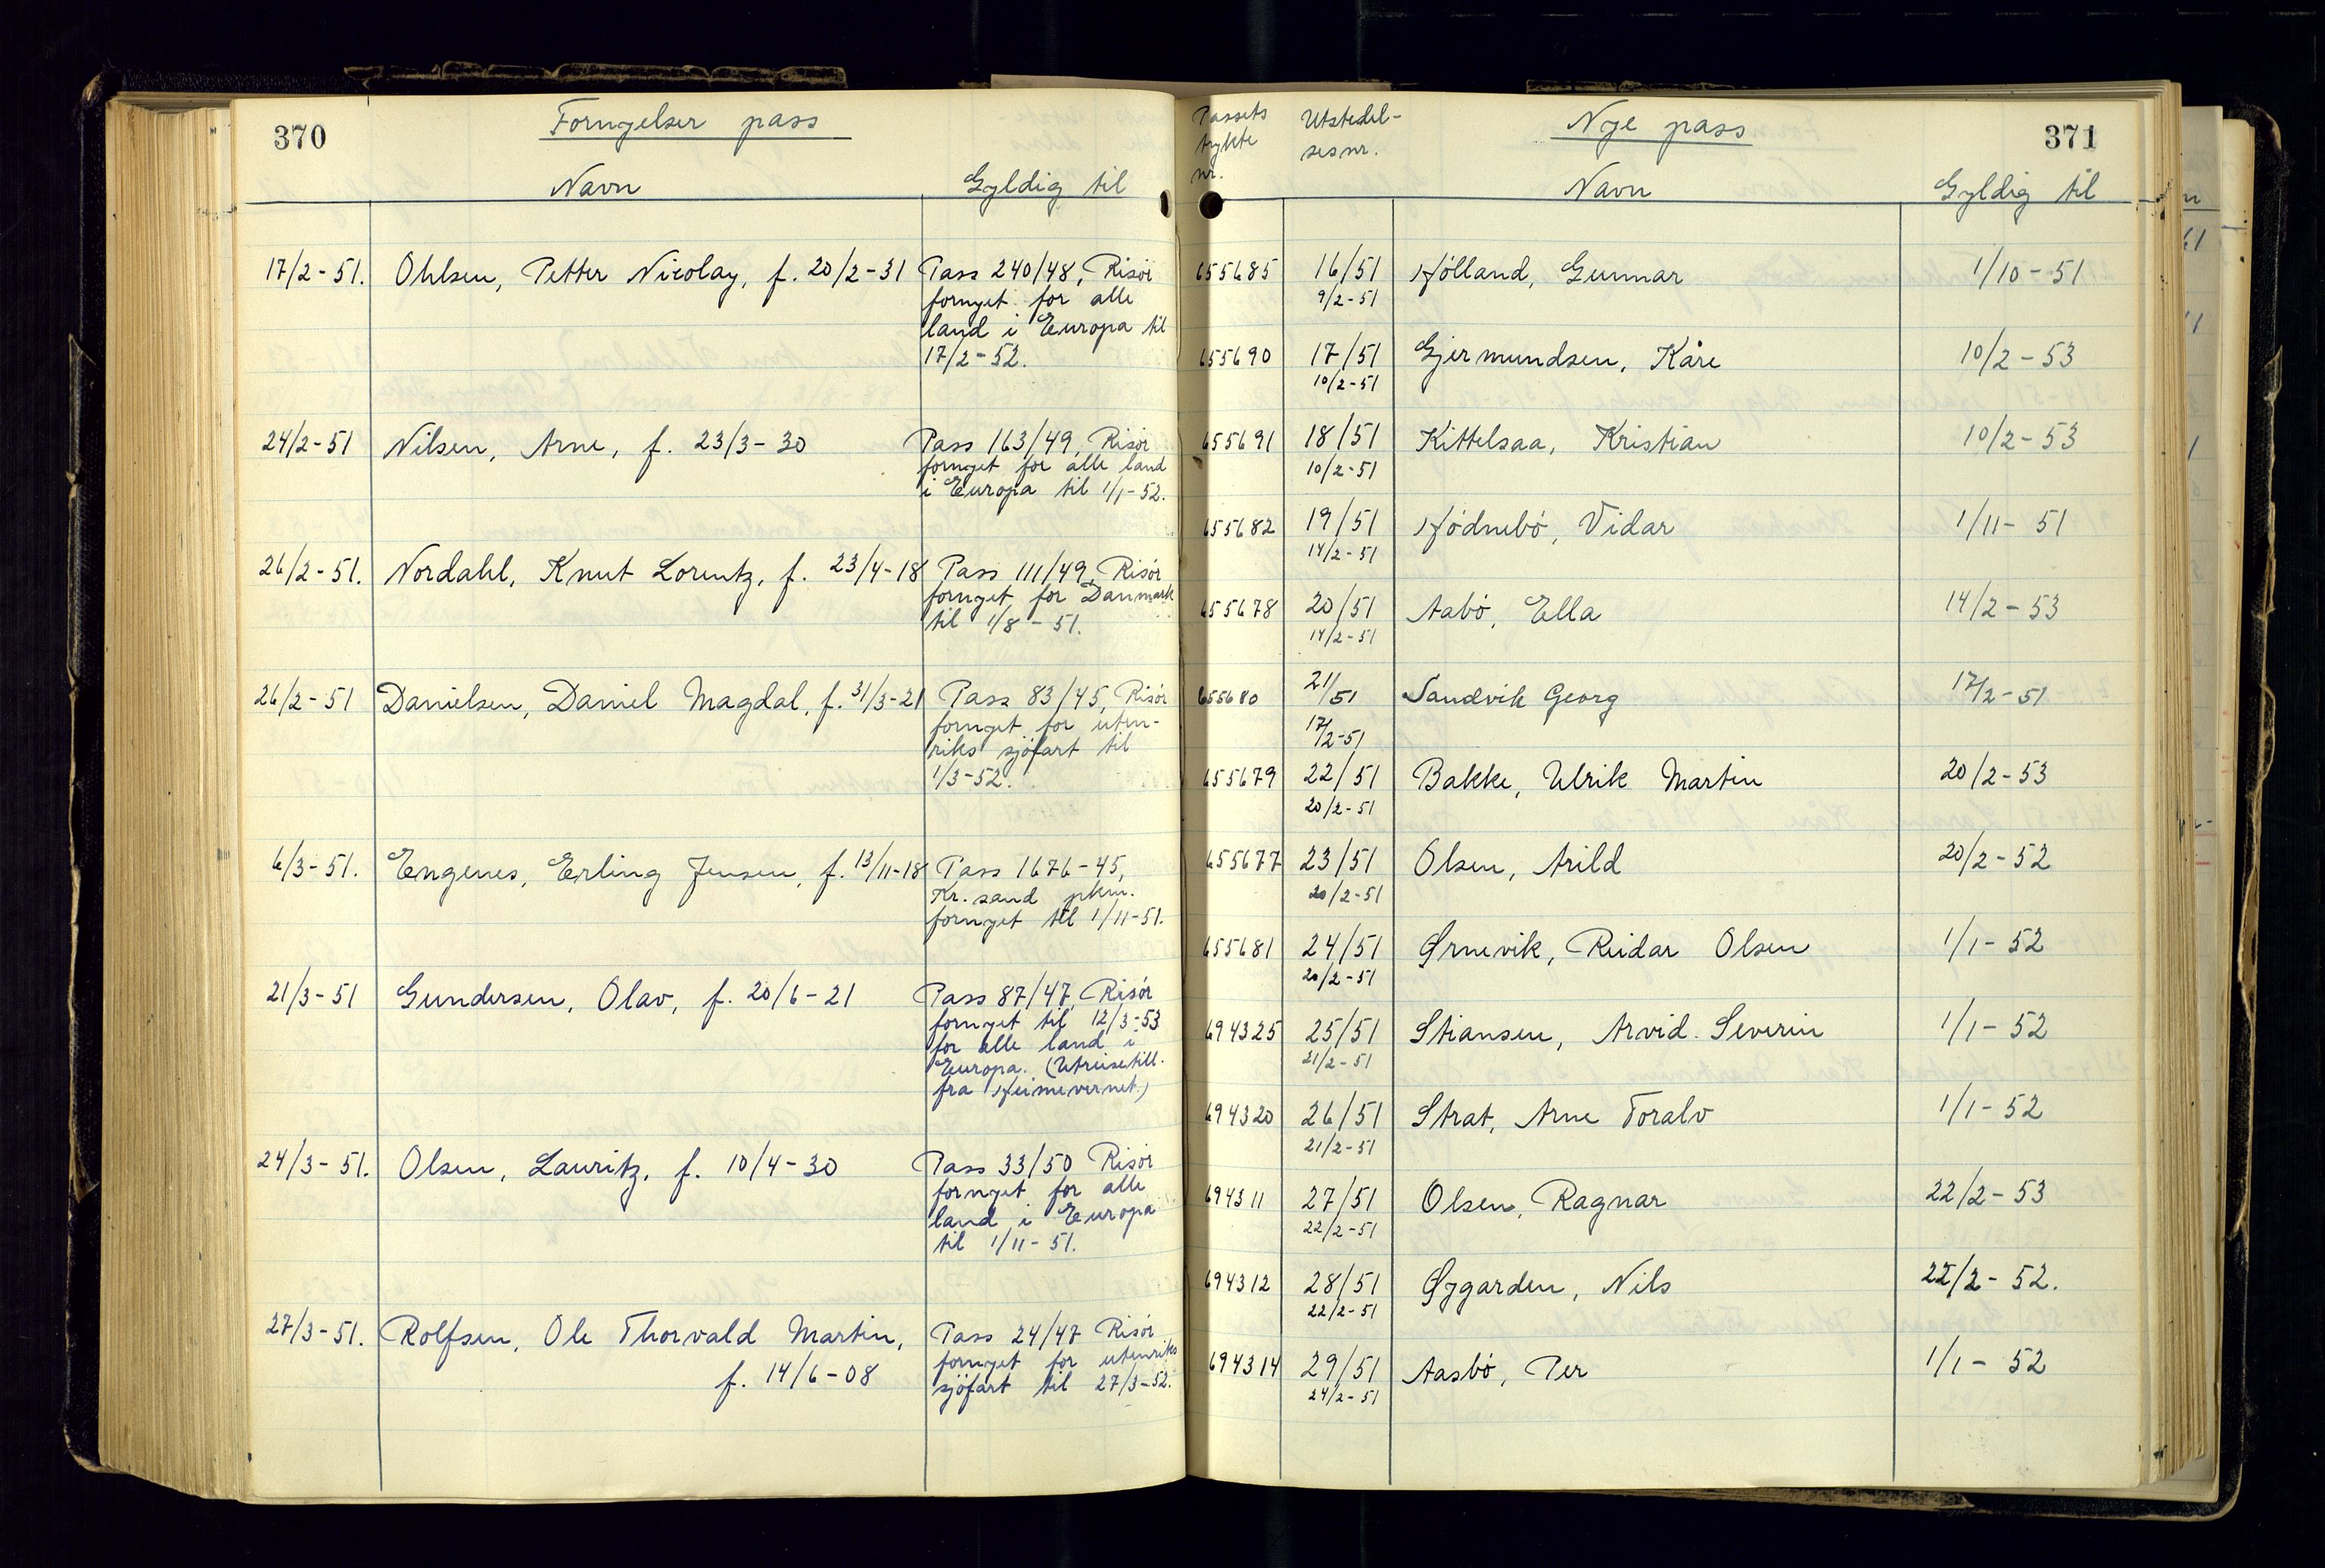 370
Fornyelser pass
Navn
Gyldig til
17/2-51.
Ohlsen, Petter Nicolay, f. 20/2-31
Pass 240/48, Risör
fornyet for alle
land i Europa til
17/2-52.
24/2-51
Nilsen, Arne, f. 23/3-30
Pass 163/49, Risör
fornyet for alle land
i Europa til 1/1-52.
26/2-51.
Nordahl, Knut Lorentz, f. 23/4-18
Pass 111/49, Risör
fornyet for Danmark
til 1/8-51.
26/2-51
Danielsen, Daniel Magdal, f. 31/3-21
Pass 83/45, Risör
fornyet for uten-
riks sjöfart til
1/3-52.
6/3-51.
Engenes, Erling Jensen, f. 13/11-18
Pass 1676-45,
Kr.sand pkm.
fornyet til 1/11-51.
21/3-51
Gundersen, Olav, f. 20/6-21
Pass 87/47, Risör
fornyet til 12/3-53
for alle land i
Europa. (Utreisetill.
fra Heimevernet.)
24/3-51.
Olsen, Lauritz, f. 10/4-30
Pass 33/50 Risör
fornyet for alle
land i Europa
til 1/11-51.
27/3-51.
Rolfsen, Ole Thorvald Martin,
f. 14/6-08
Pass 24/47 Risör
fornyet for utenriks
sjöfart til 27/3-52.
371
Passets
trykte
nr.
Utstedel-
sesnr.
Nye pass
Navn
Gyldig til
655685 16/51 Hölland, Gunnar 1/10-51
9/2-51
655690 17/51 Gjermundsen, Kåre 10/2-53
10/2-51
655691 18/51 Kittelsaa, Kristian 10/2-53
10/2-51
655682 19/51 Hödnebö, Vidar 1/11-51
14/2-51
655678 20/51 Aabö, Ella 14/2-53
14/2-51
655680 21/51 Sandvik Georg 17/2-51
17/2-51
655679 22/51 Bakke, Ulrik Martin 20/2-53
20/2-51
655677 23/51 Olsen, Arild 20/2-52
20/2-51
655681 24/51 Ørnevik, Reidar Olsen 1/1-52
20/2-51
694325 25/51 Stiansen, Arvid Severin 1/1-52
21/2-51
694320 26/51 Strat, Arne Toralv 1/1-52
21/2-51
694311 27/51 Olsen, Ragnar 22/2-53
22/2-51
694312 28/51 Øygarden, Nils 22/2-52.
22/2-51
694314 29/51 Aasbö, Per 1/1-52
24/2-51